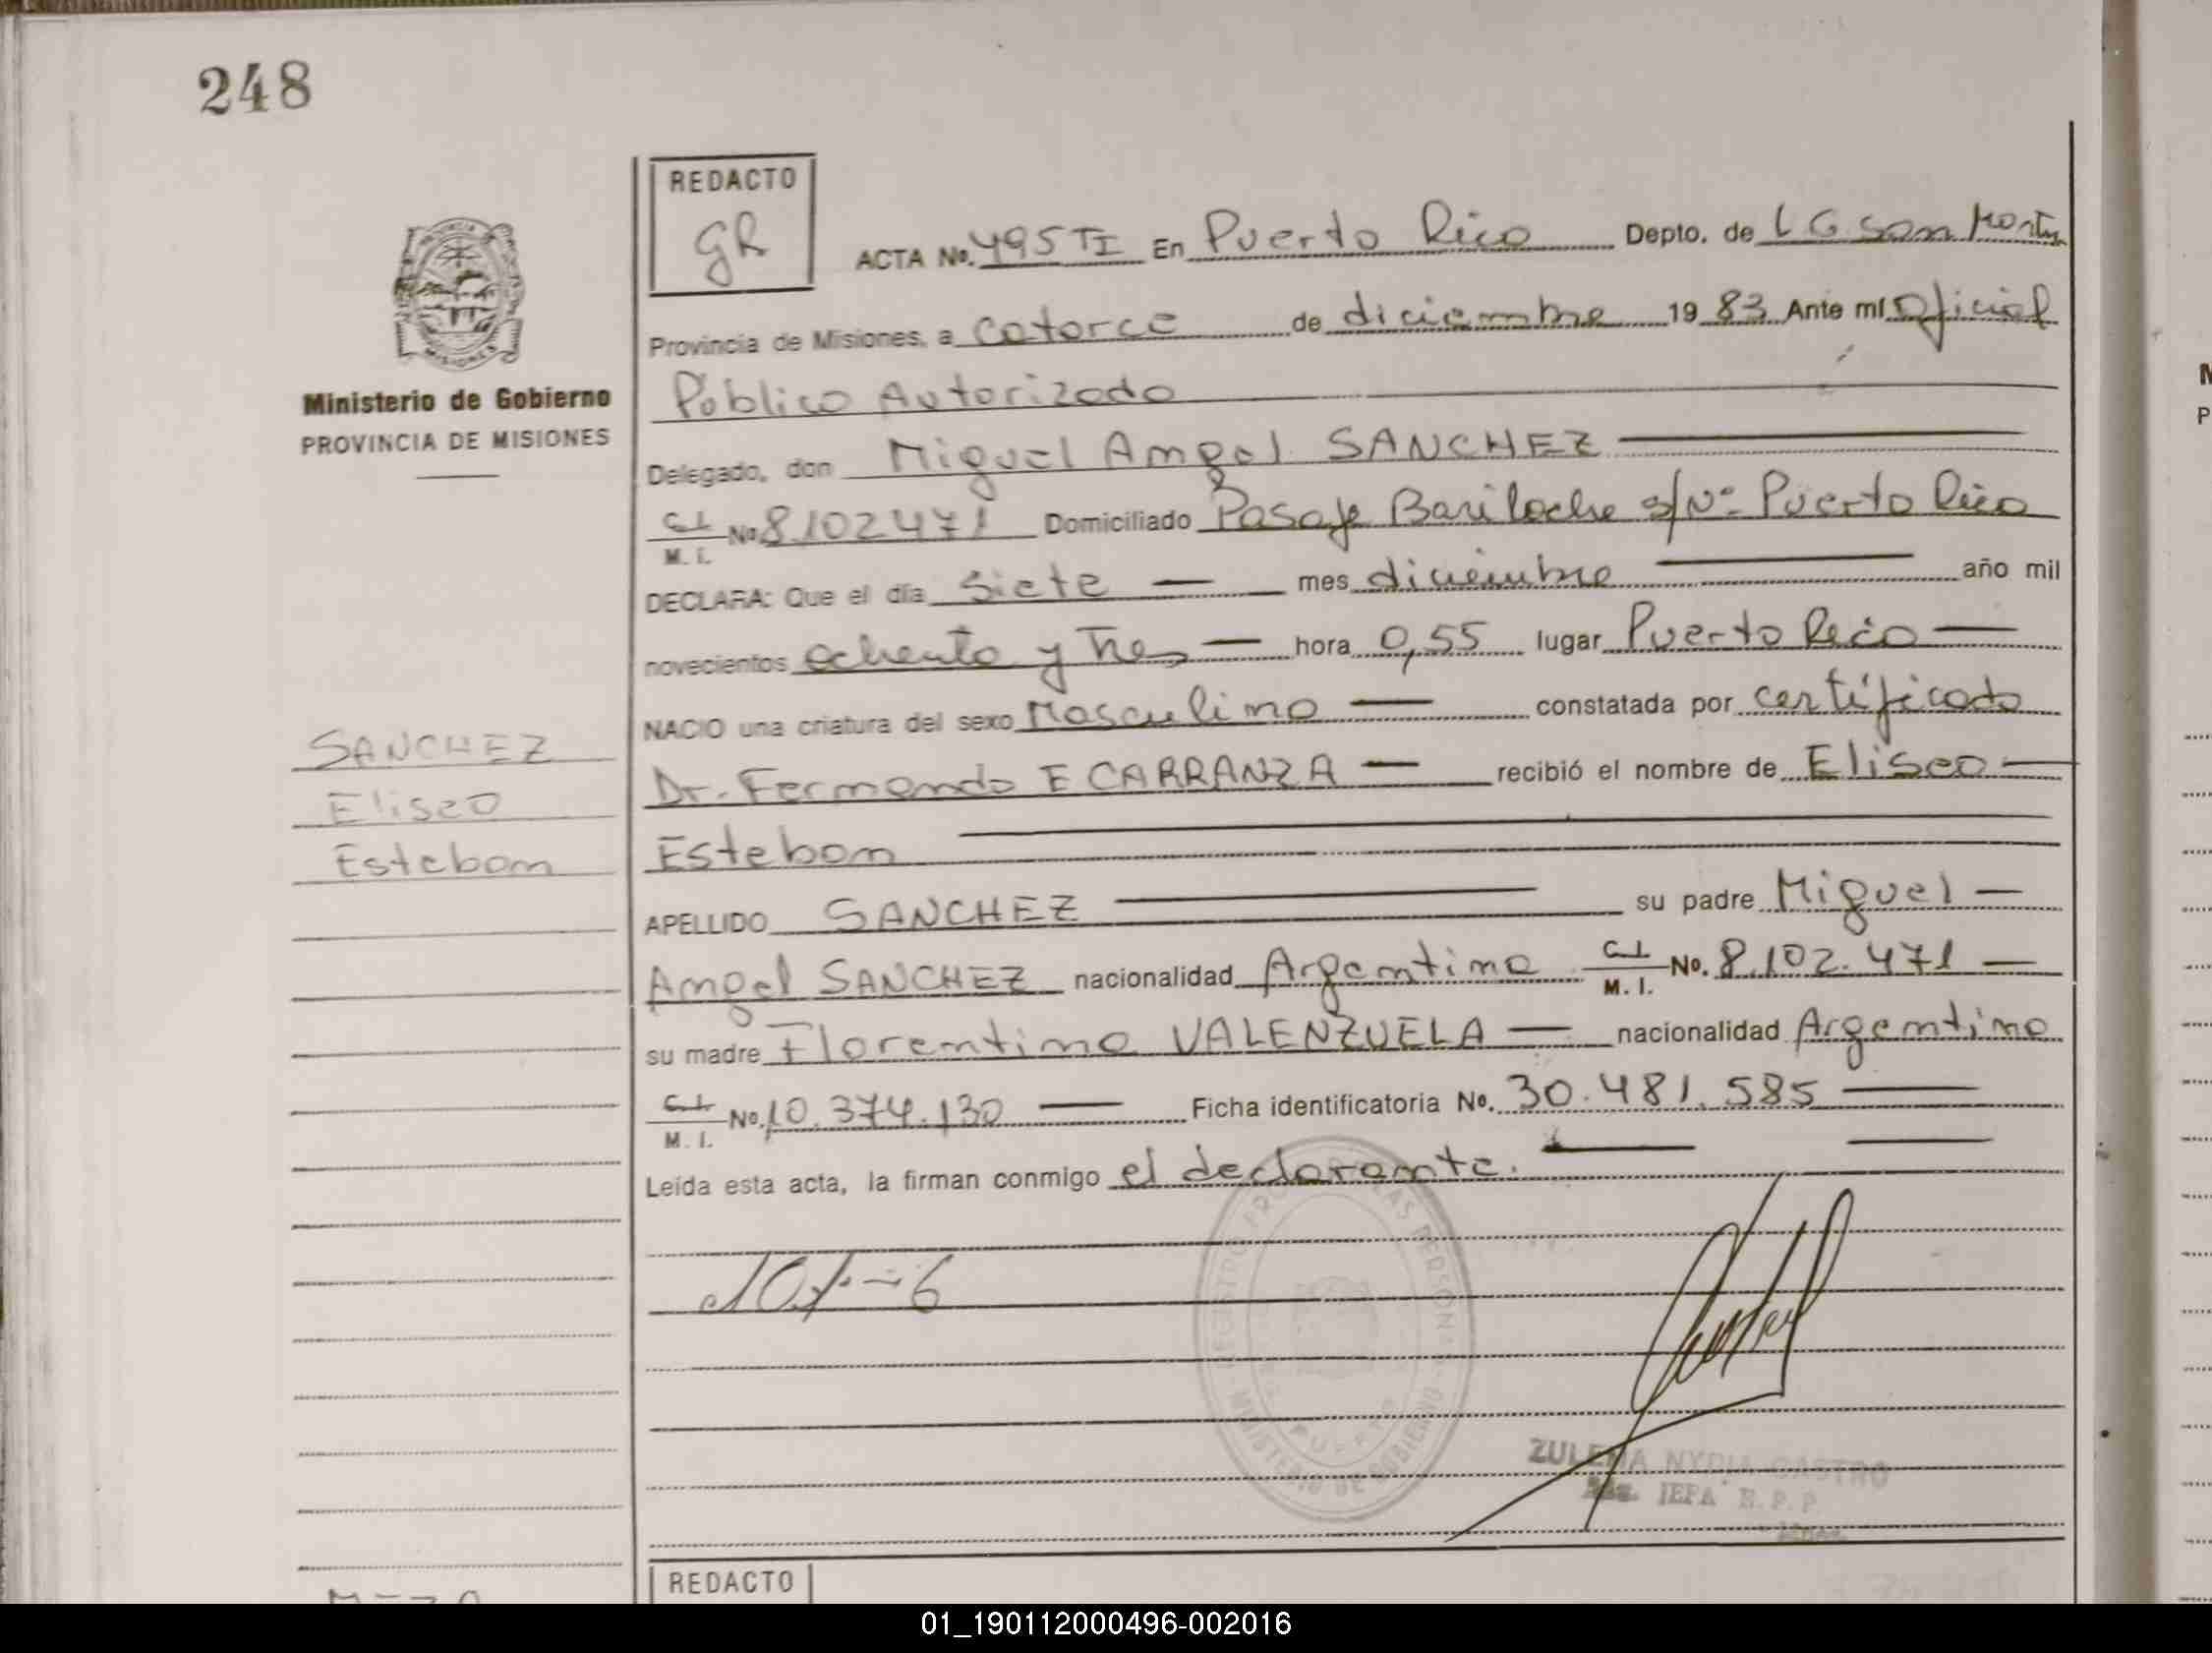 248
REDACTO
gR
ACTA No. 495 TI En Puerto Rico Depto. de L G San Martin
Provincia de Misiones, a catorce de diciembre 19 83 Ante mí Oficial
Público Autorizado
Ministerio de Gobierno
PROVINCIA DE MISIONES
Delegado, don Miguel Angel SANCHEZ
C.I. M. I. No 8.102.471 Domiciliado Pasaje Bariloche s/Nº Puerto Rico
DECLARA: Que el día siete mes diciembre año mil
novecientos ochenta y tres hora 0,55 lugar Puerto Rico
NACIO una criatura del sexo Masculino constatada por certificado
Dr. Fernando E CARRANZA recibió el nombre de Eliseo
Esteban
SANCHEZ
Eliseo
Esteban
APELLIDO SANCHEZ su padre Miguel
Angel SANCHEZ nacionalidad Argentina C.I. M. I. No. 8.102.471
su madre Florentina VALENZUELA nacionalidad Argentina
C.I. M. I. No. 10.374.130 Ficha identificatoria No. 30.481.585
Leída esta acta, la firman conmigo el declarante.
ZULEMA NYDIA CASTRO
JEFA R. P. P.
REDACTO
01_190112000496-002016